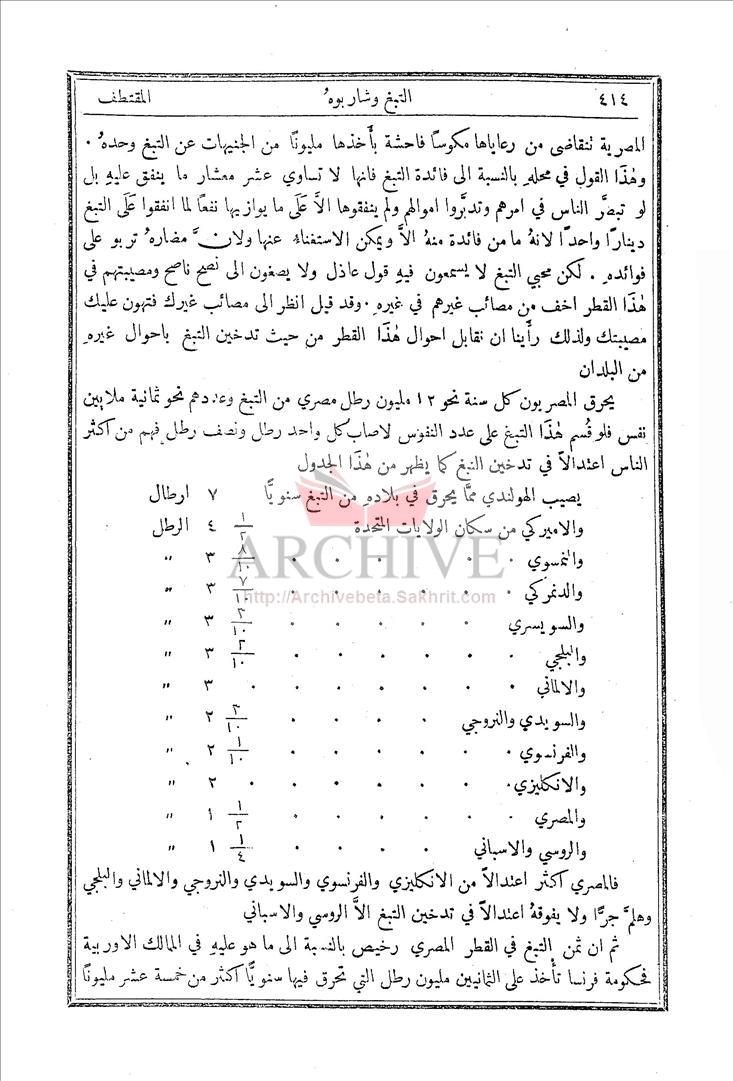 ٤١٤ التبغ وشاربوهُ المقتطف
المصرية تتقاضى من رعاياها مكوسًا فاحشة بأخذها مليونًا من الجنيهات عن التبغ وحدهُ .
وهٰذا القول في محلهِ بالنسبة الى فائدة التبغ فانها لا تساوي عشر معشار ما ينفق عليهِ بل
لو تبصَّر الناس في امرهم وتدبَّروا اموالهم ولم ينفقوها الاَّ عَلَى ما يوازيها نفعًا لما انفقوا عَلَى التبغ
دينارًا واحدًا لانهُ ما من فائدة منهُ الاَّ ويمكن الاستغناء عنها ولانَّ مضارهُ تربو على
فوائدهِ . لكن محبي التبغ لا يسمعون فيهِ قول عاذل ولا يصغون الى نصح ناصح ومصيبتهم في
هٰذا القطر اخف من مصائب غيرهم في غيرهِ . وقد قيل انظر الى مصائب غيرك فتهون عليك
مصيبتك ولذلك رأينا ان نقابل احوال هٰذا القطر من حيث تدخين التبغ باحوال غيرهِ
من البلدان
يحرق المصريون كل سنة نحو ١٢ مليون رطل مصري من التبغ وعددهم نحو ثمانية ملايين
نفس فلو قُسم هٰذا التبغ على عدد النفوس لاصاب كل واحد رطل ونصف رطل فهم من اكثر
الناس اعتدالاً في تدخين التبغ كما يظهر من هٰذا الجدول
يصيب الهولندي ممَّا يحرق في بلادهِ من التبغ سنويًّا ٧ ارطال
والاميركي من سكان الولايات المتحدة ١/٢ ٤ الرطل
والنمسوي . . . . . ٨/١٠ ٣ "
والدنمركي . . . . . . ٧/١٠ ٣ "
والسويسري . . . . . ٣/١٠ ٣ "
والبلجي . . . . . . ٢/١٠ ٣ "
والالماني . . . . . . . ٣ "
والسويدي والنروجي . . . . ٣/١٠ ٢ "
والفرنسوي . . . . . . ١/١٠ ٢ "
والانكليزي . . . . . . . ٢ "
والمصري . . . . . . ١/٢ ١ "
والروسي والاسباني . . . . ١/٤ ١ "
فالمصري اكثر اعتدالاً من الانكليزي والفرنسوي والسويدي والنروجي والالماني والبلجي
وهلمَّ جرًّا ولا يفوقهُ اعتدالاً في تدخين التبغ الاَّ الروسي والاسباني
ثم ان ثمن التبغ في القطر المصري رخيص بالنسبة الى ما هو عليهِ في الممالك الاوربية
فحكومة فرنسا تأخذ على الثمانيين مليون رطل التي تحرق فيها سنويًّا اكثر من خمسة عشر مليونًا
ARCHIVE
http://Archivebeta.Sakhrit.com